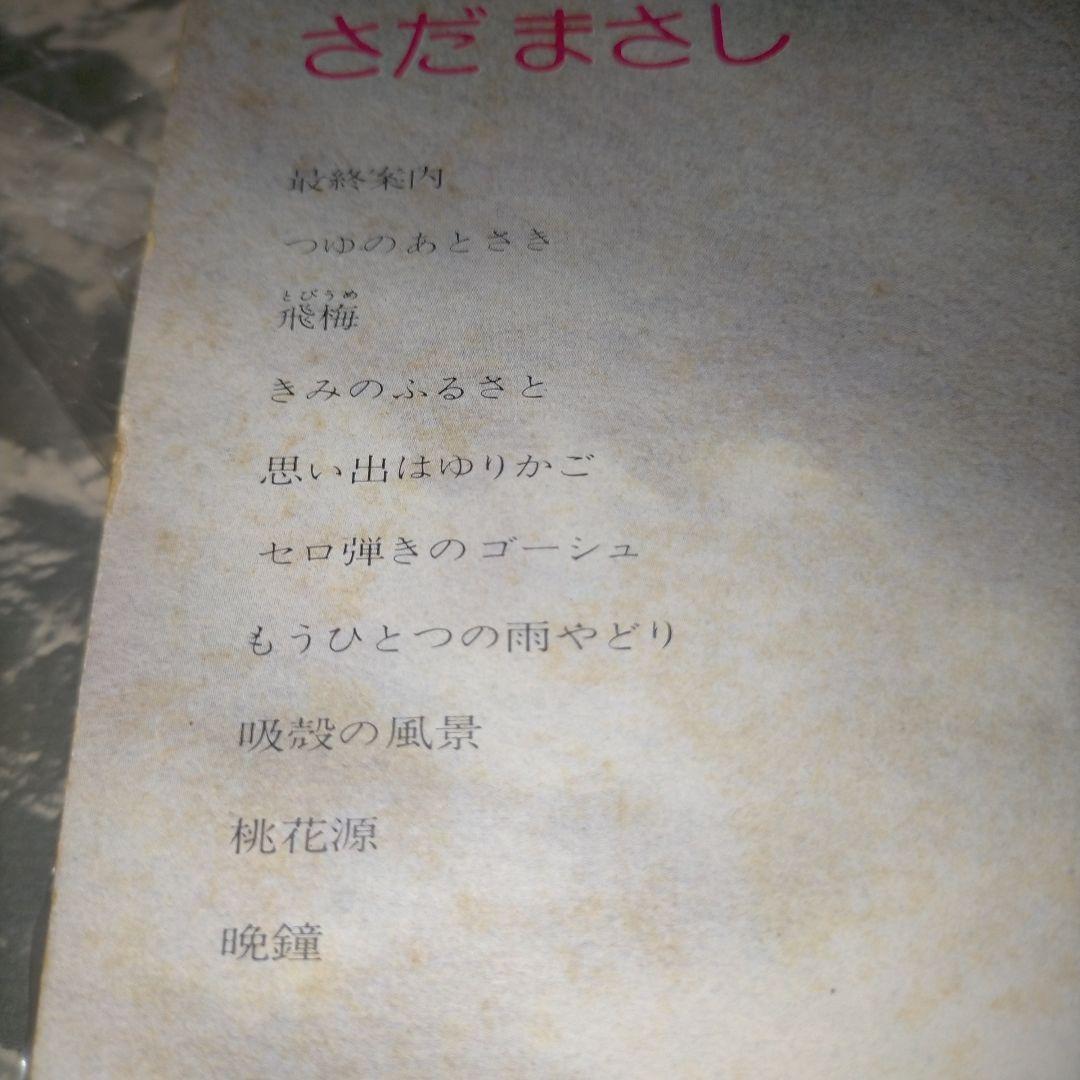 さだまさし
最終案内
つゆのあとさき
とびうめ
飛梅
きみのふるさと
思い出はゆりかご
セロ弾きのゴーシュ
もうひとつの雨やどり
吸殻の風景
桃花源
晩鐘